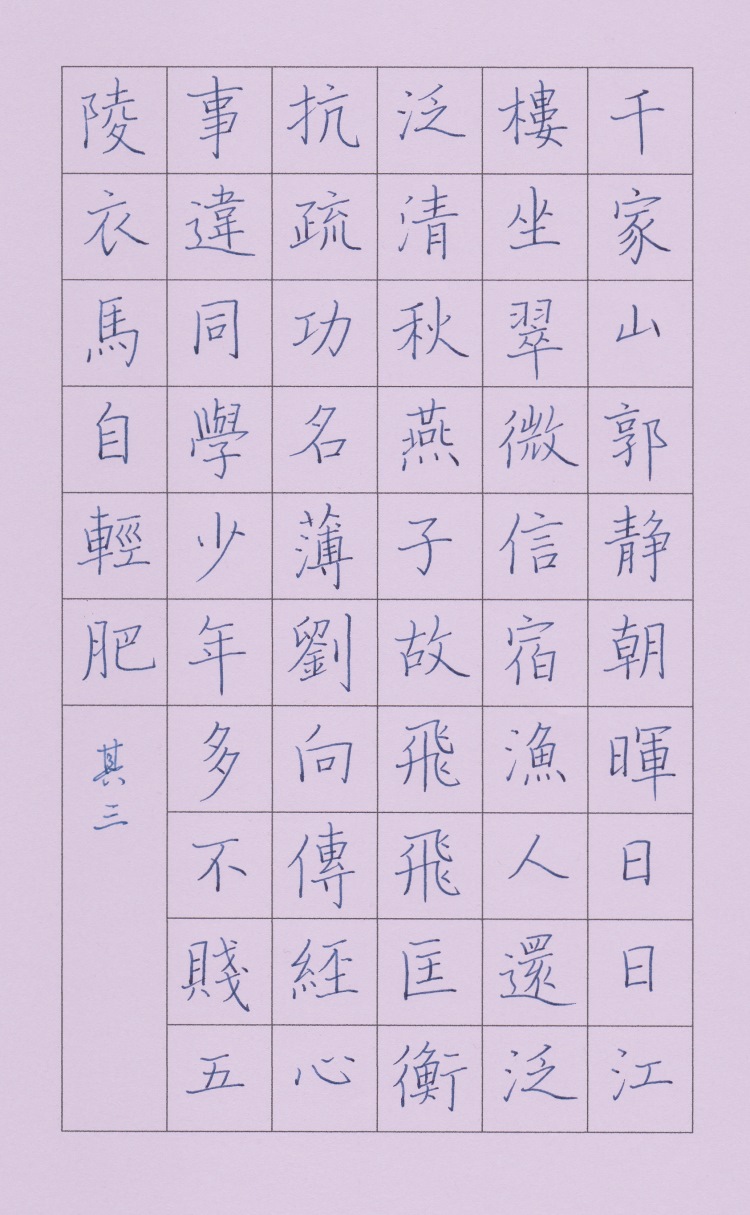 千家山郭静朝暉日日江
樓坐翠微信宿漁人還泛
泛清秋燕子故飛飛匡衡
抗疏功名薄劉向傳經心
事違同學少年多不賤五
陵衣馬自輕肥
其三